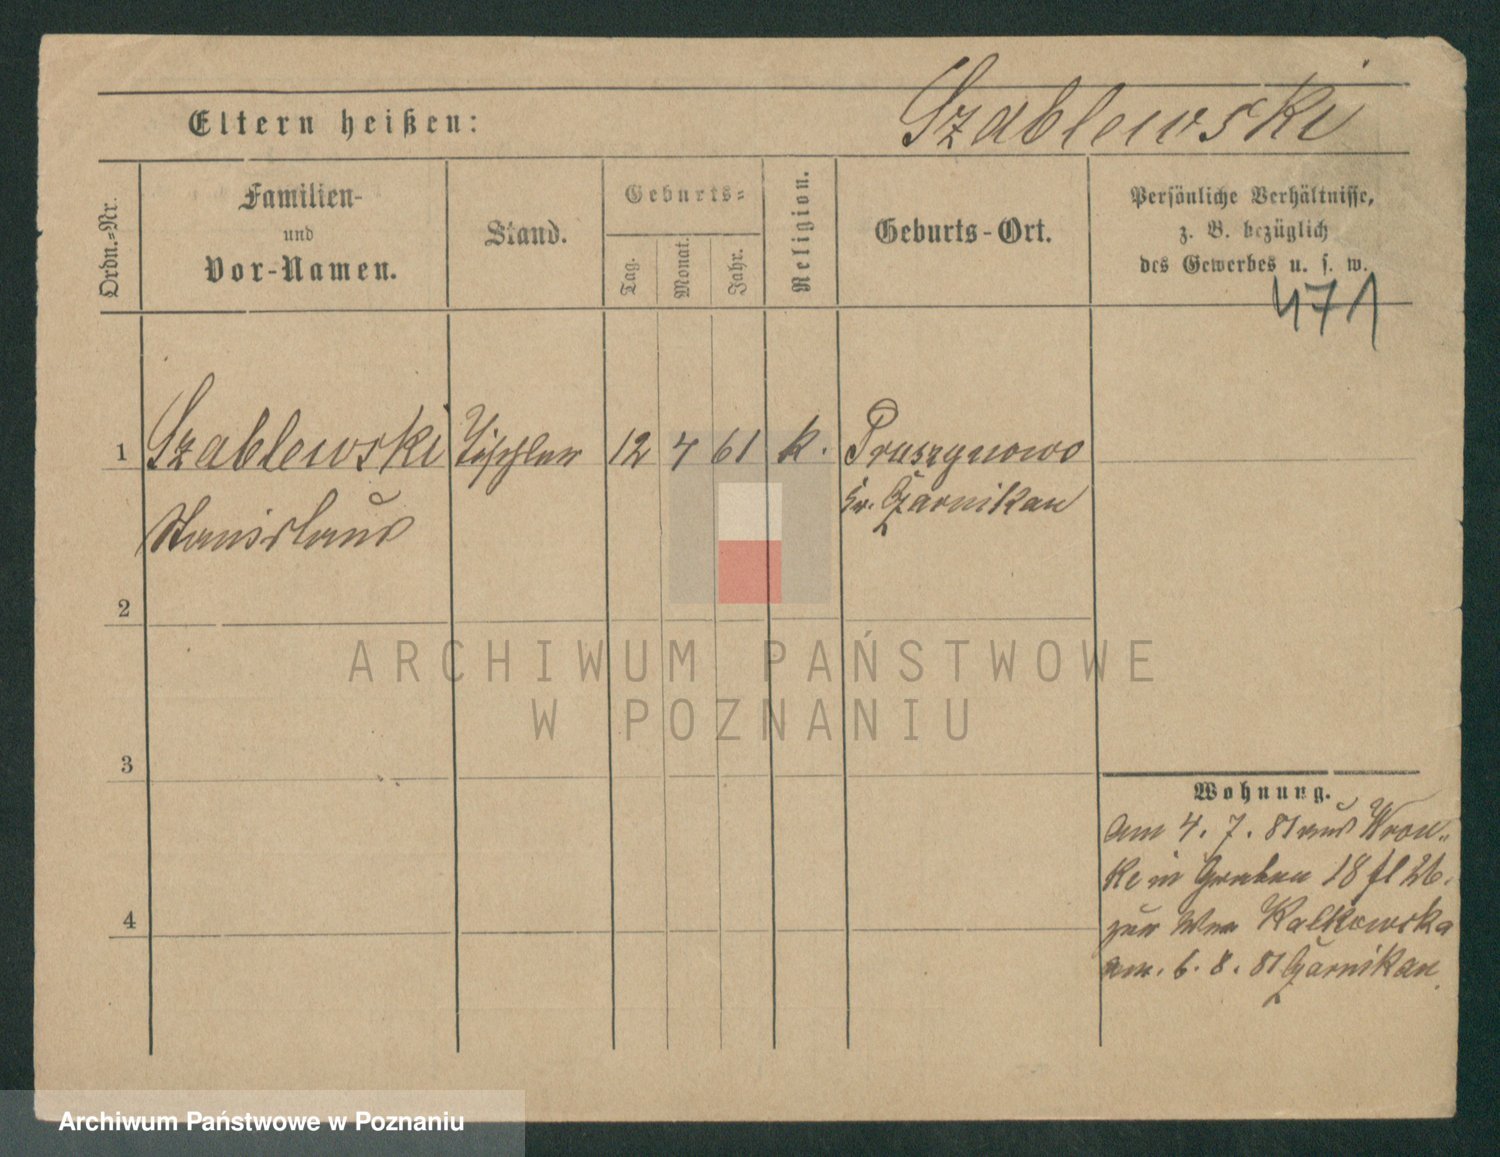 Szablewski
Eltern heißen:
Ordn.-Nr.
Familien-
und
Vor-Namen.
Stand.
Geburts-
Tag.
Monat.
Jahr.
Religion.
Geburts-Ort.
Persönliche Verhältnisse,
z. B. bezüglich
des Gewerbes u. s. w.
471
1 Szablewski Tischler 12 4 61 k. Pruszynowo
Kr. Czarnikau
Stanislaus
2
3
4
Wohnung.
am 4. 7. 81 aus Wron-
ke in Graben 18 fl 26.
zur Kalkowska
am. 6. 8. 81 Czarnikau
ARCHIWUM PAŃSTWOWE
W POZNANIU
Archiwum Państwowe w Poznaniu